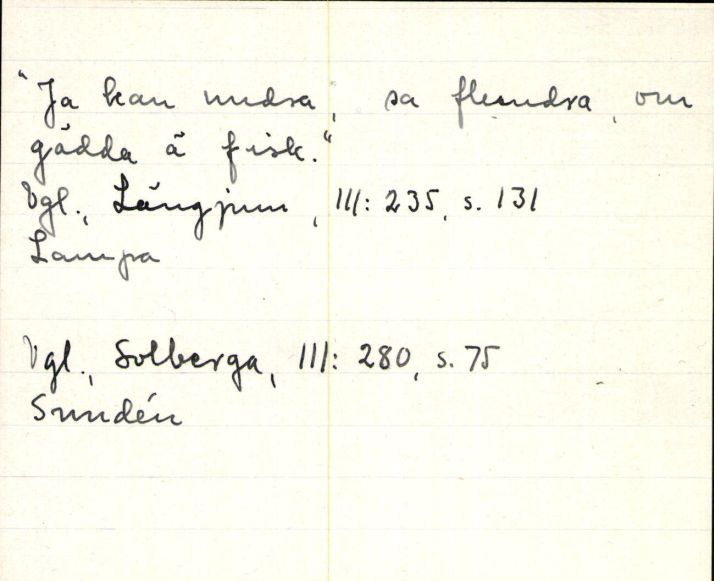 "Ja kan undra, sa flundra, om
gädda ä fisk."
Vgl., Längjum, III: 235, s. 131
Lampa
Vgl., Solberga, III: 280, s. 75
Sundén